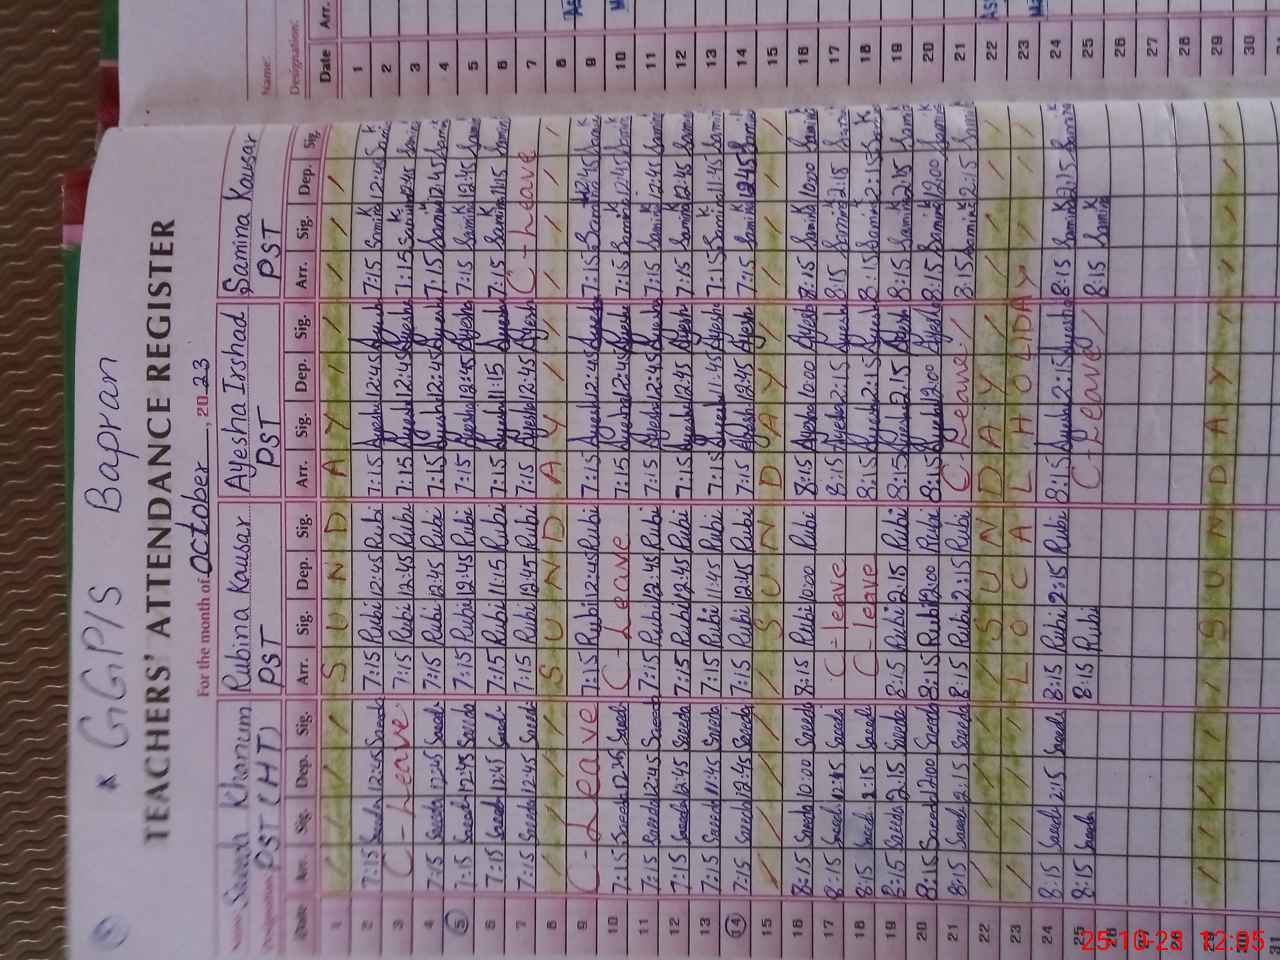 * GGP/S Bapran
TEACHERS' ATTENDANCE REGISTER
For the month of October, 2023
Name Saeeda Khanum Rubina Kausar Ayesha Irshad Samina Kousar
Designation PST (HT) PST PST PST
Date Arr. Sig. Dep. Sig. Arr. Sig. Dep. Sig. Arr. Sig. Dep. Sig. Arr. Sig. Dep. Sig.
1 S U N D A Y
2 7:15 Saeeda 12:45 Saeeda 7:15 Rubi 12:45 Rubi 7:15 Ayesha 12:45 Ayesha 7:15 Samina K 12:45 Samina K
3 C-Leave 7:15 Rubi 12:45 Rubi 7:15 Ayesha 12:45 Ayesha 7:15 Samina K 12:45 Samina
4 7:15 Saeeda 12:45 Saeeda 7:15 Rubi 12:45 Rubi 7:15 Ayesha 12:45 Ayesha 7:15 Samina 12:45 Samina
5 7:15 Saeeda 12:45 Saeeda 7:15 Rubi 12:45 Rubi 7:15 Ayesha 12:45 Ayesha 7:15 Samina K 12:45 Samina
6 7:15 Saeeda 12:45 Saeeda 7:15 Rubi 11:15 Rubi 7:15 Ayesha 11:15 Ayesha 7:15 Samina K 11:15 Samina
7 7:15 Saeeda 12:45 Saeeda 7:15 Rubi 12:45 Rubi 7:15 Ayesha 12:45 Ayesha C-Leave
8 S U N D A Y
9 C-Leave 7:15 Rubi 12:45 Rubi 7:15 Ayesha 12:45 Ayesha 7:15 Samina 12:45 Samina K
10 7:15 Saeeda 12:45 Saeeda C-Leave 7:15 Ayesha 12:45 Ayesha 7:15 Samina K 12:45 Samina K
11 7:15 Saeeda 12:45 Saeeda 7:15 Rubi 12:45 Rubi 7:15 Ayesha 12:45 Ayesha 7:15 Samina K 12:45 Samina
12 7:15 Saeeda 12:45 Saeeda 7:15 Rubi 12:45 Rubi 7:15 Ayesha 12:45 Ayesha 7:15 Samina K 12:45 Samina
13 7:15 Saeeda 11:45 Saeeda 7:15 Rubi 11:45 Rubi 7:15 Ayesha 11:45 Ayesha 7:15 Samina K 11:45 Samina
14 7:15 Saeeda 12:45 Saeeda 7:15 Rubi 12:45 Rubi 7:15 Ayesha 12:45 Ayesha 7:15 Samina 12:45 Samina
15 S U N D A Y
16 8:15 Saeeda 10:00 Saeeda 8:15 Rubi 10:00 Rubi 8:15 Ayesha 10:00 Ayesha 8:15 Samina K 10:00 Samina K
17 8:15 Saeeda 2:15 Saeeda C-leave 8:15 Ayesha 2:15 Ayesha 8:15 Samina K 2:15 Samina
18 8:15 Saeeda 2:15 Saeeda C-leave 8:15 Ayesha 2:15 Ayesha 8:15 Samina K 2:15 Samina K
19 8:15 Saeeda 2:15 Saeeda 8:15 Rubi 2:15 Rubi 8:15 Ayesha 2:15 Ayesha 8:15 Samina K 2:15 Samina
20 8:15 Saeeda 12:00 Saeeda 8:15 Rubi 12:00 Rubi 8:15 Ayesha 12:00 Ayesha 8:15 Samina K 12:00 Samina
21 8:15 Saeeda 2:15 Saeeda 8:15 Rubi 2:15 Rubi C Leave 8:15 Samina K 2:15 Samina
22 S U N D A Y
23 L O C A L H O L I D A Y
24 8:15 Saeeda 2:15 Saeeda 8:15 Rubi 2:15 Rubi 8:15 Ayesha 2:15 Ayesha 8:15 Samina K 2:15 Samina
25 8:15 Saeeda 8:15 Rubi C-Leave 8:15 Samina K
26
27
28
29 S U N D A Y
30
31
Name:
Designation:
Date Arr.
1
2
3
4
5
6
7
8
9
10
11
12
13
14
15
16
17
18
19
20
21
22
23
24
25
26
27
28
29
30
25-10-23 12:05